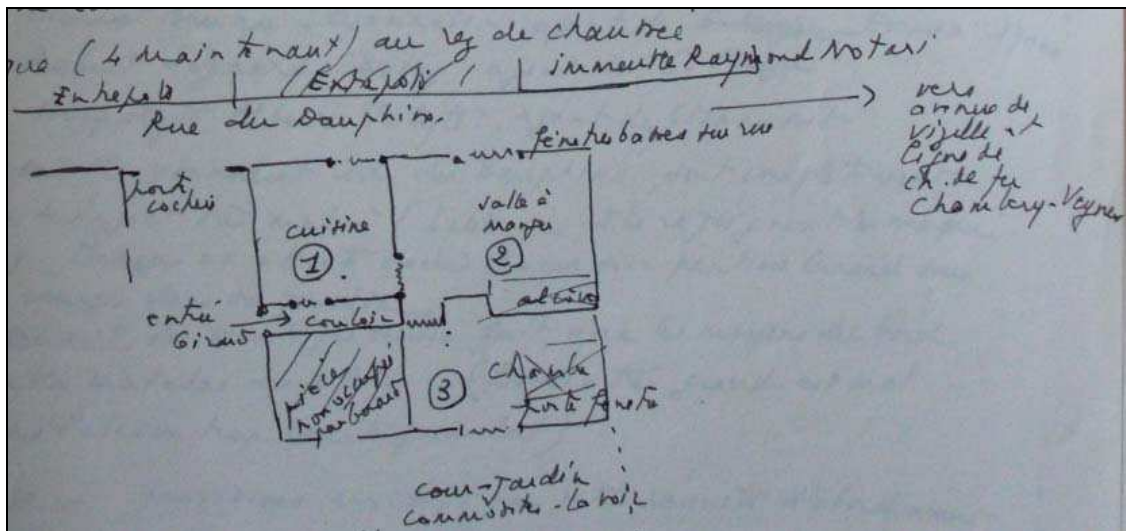 rue (4 maintenant) au rez de chaussée
Entrepôts (Entrepôts) immeuble Raymond Notari
Rue du Dauphiné.
fenêtres basses sur rue
vers
avenue de
Vizille et
ligne de
ch. de fer
Chambéry-Veynes
porte
cochère
cuisine
1
salle à
manger
2
alcôve
entrée
Giraud
couloir
pièce
non occupée
par Giraud
3
chambre
porte fenêtre
cour-jardin
commodités-lavoir